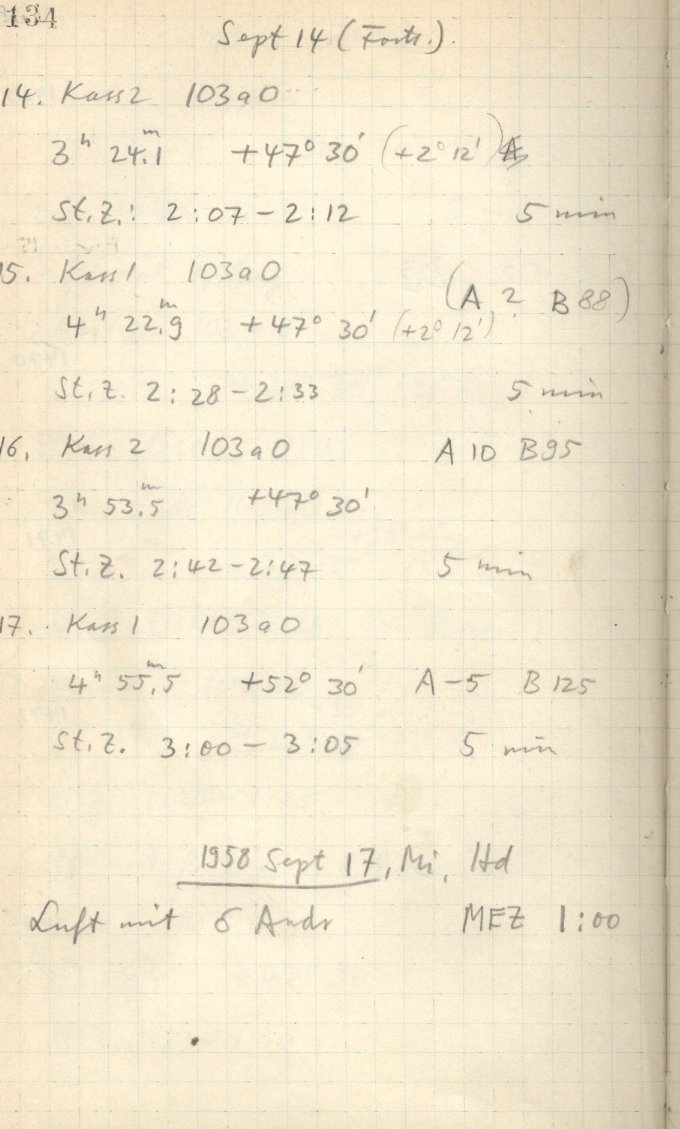 134
Sept 14 (Forts.).
14. Kass 2 103a0
3ʰ 24.1ᵐ +47° 30' (+2° 12')
St.Z.: 2:07 – 2:12 5 min
15. Kass 1 103a0
(A 2 B 88)
4ʰ 22.9ᵐ +47° 30' (+2° 12')
St.Z. 2:28 – 2:33 5 min
16. Kass 2 103a0 A 10 B 95
3ʰ 53.5ᵐ +47° 30'
St.Z. 2:42 – 2:47 5 min
17. Kass 1 103a0
4ʰ 55.5ᵐ +52° 30' A –5 B 125
St.Z. 3:00 – 3:05 5 min
1958 Sept 17, Mi, Hd
Luft mit δ Andr MEZ 1:00